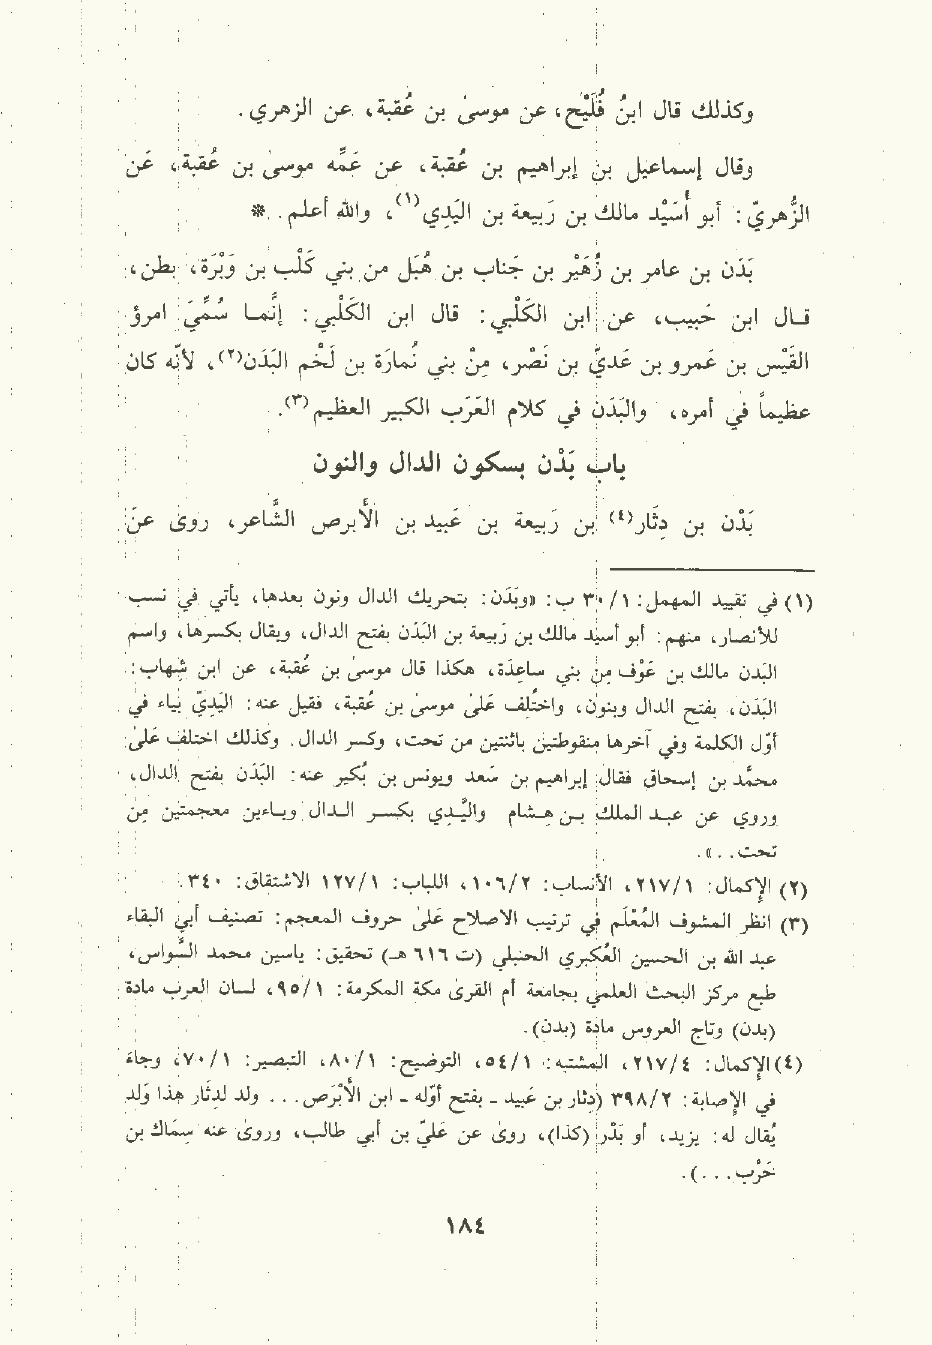 وكذلك قال ابنُ فُلَيْح، عن موسىٰ بن عُقبة، عن الزهري.
وقال إسماعيل بن إبراهيم بن عُقبة، عن عَمِّه موسىٰ بن عُقبة، عن
الزُّهريّ: أبو أُسَيْد مالك بن رَبيعة بن البَدِي(١)، والله أعلم. *
بَدَن بن عامر بن زُهَيْر بن جَناب بن هُبَل من بني كَلْب بن وَبْرَة، بطن،
قـال ابن حَبيب، عن ابن الكَلْبي: قال ابن الكَلْبي: إنّما سُمِّيَ امرؤ
القَيْس بن عَمرو بن عَديّ بن نَصْر، مِن بني نُمارَة بن لَخْم البَدَن(٢)، لأنّه كان
عظيماً في أمره، والبَدَن في كلام العَرَب الكبير العظيم(٣).
باب بَدْن بسكون الدال والنون
بَدْن بن دِثَار(٤) بن رَبيعة بن عَبيد بن الأبرص الشَّاعر، روى عن
(١) في تقييد المهمل: ٣٠/١ ب: «وبَدَن: بتحريك الدال ونون بعدها، يأتي في نسب
للأنصار، منهم: أبو أُسيد مالك بن رَبيعة بن البَدَن بفتح الدال، ويقال بكسرها، واسم
البَدَن مالك بن عَوْف مِن بني ساعِدَة، هكذا قال موسىٰ بن عُقبة، عن ابن شِهاب:
البَدَن، بفتح الدال وبنون، واختُلِف علىٰ موسىٰ بن عُقبة، فقيل عنه: البَدِيّ بياء في
أوّل الكلمة وفي آخرها منقوطتين باثنتين من تحت، وكسر الدال. وكذلك اختلف علىٰ
محمّد بن إسحاق فقال: إبراهيم بن سَعد ويونس بن بُكير عنه: البَدَن بفتح الدال،
وروي عن عبـد الملك بـن هـشام واليَـدِي بكسـر الـدال ويـاءين معجمتين مِن
تحت..».
(٢) الإكمال: ٢١٧/١، الأنساب: ١٠٦/٢، اللباب: ١٢٧/١ الاشتقاق: ٣٤٠.
(٣) انظر المشوف المُعْلَم في ترتيب الإصلاح علىٰ حروف المعجم: تصنيف أبي البقاء
عبد الله بن الحسين العُكبري الحنبلي (ت ٦١٦ هـ) تحقيق: ياسين محمد السَّواس،
طبع مركز البحث العلمي بجامعة أم القرى مكة المكرمة: ٩٥/١، لسان العرب مادة
(بدن) وتاج العروس مادة (بدن).
(٤) الإكمال: ٢١٧/٤، المشتبه: ٥٤/١، التوضيح: ٨٠/١، التبصير: ٧٠/١، وجاء
في الإصابة: ٣٩٨/٢ (دِثار بن عَبيد - بفتح أوّله - ابن الأبْرَص... ولد لدِثَار هذا وَلد
يُقال له: يزيد، أو بَدْر (كذا)، روىٰ عن عَليّ بن أبي طالب، وروىٰ عنه سِمَاك بن
حَرْب...).
١٨٤